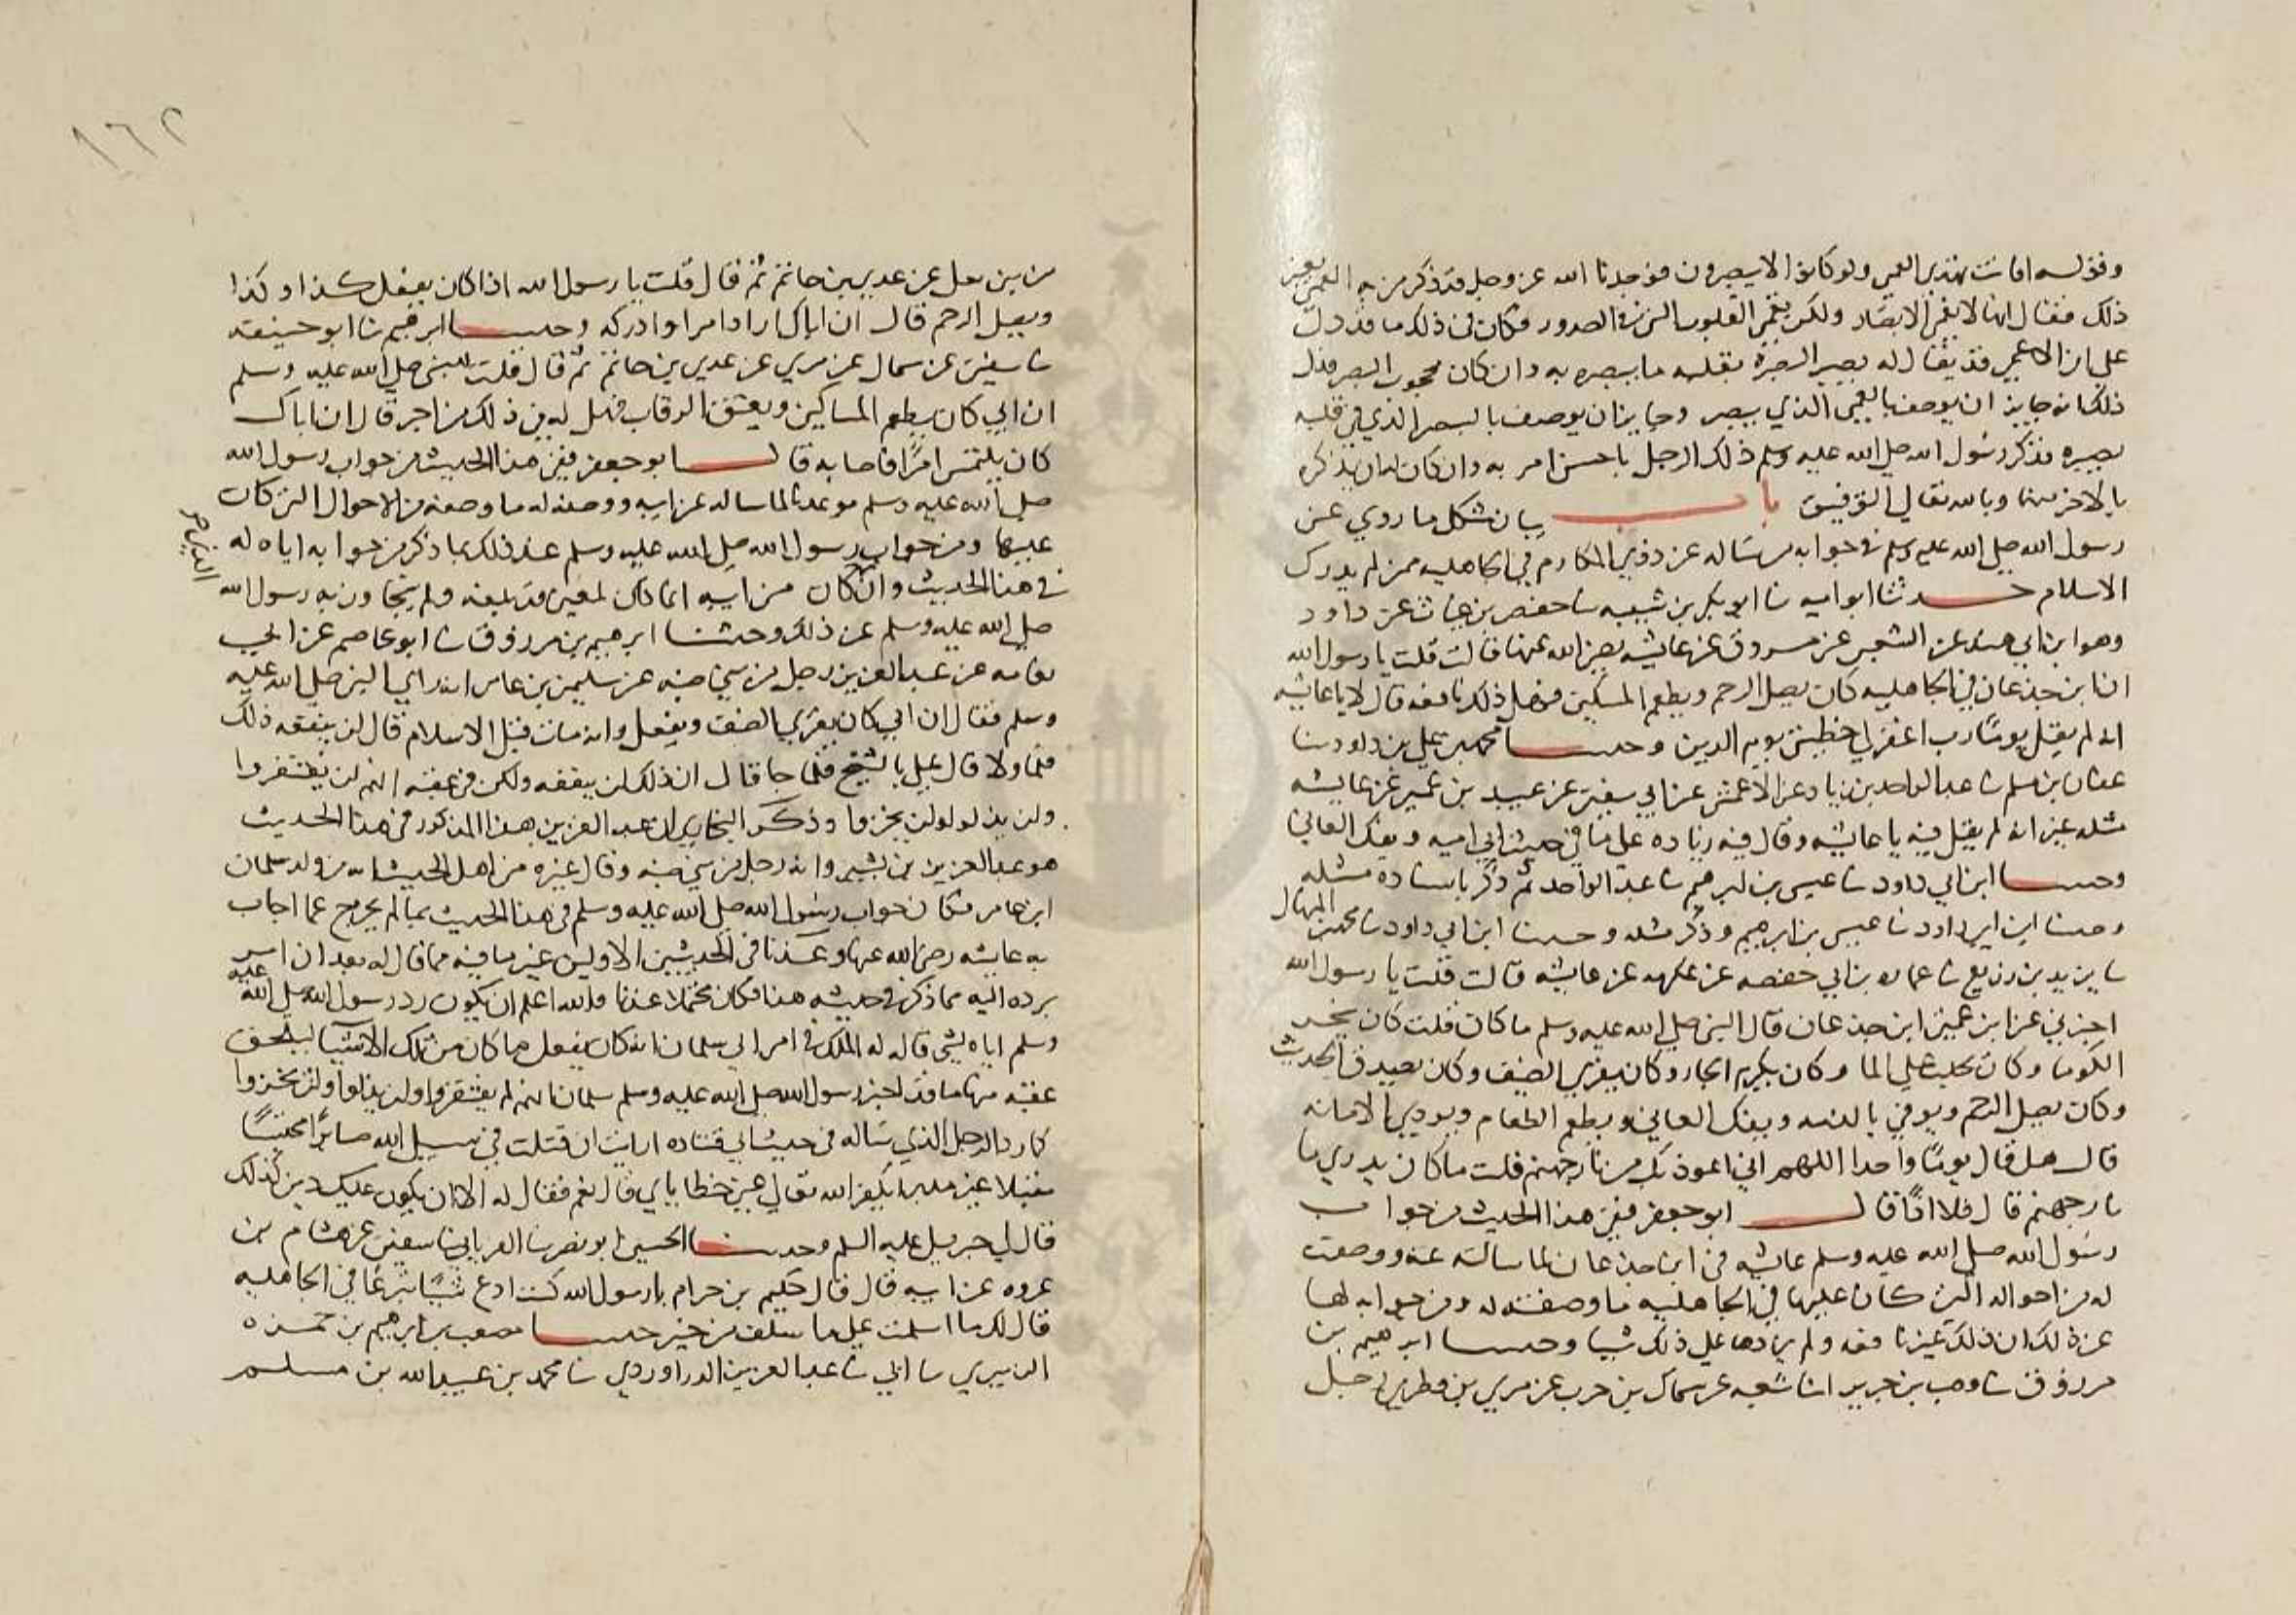 وقوله افانت تهدي العمي ولو كانوا لا يبصرون فوجدنا الله عز وجل قد ذكر من به العمى بغير
ذلك فقال انها لا تعمى الابصار ولكن تعمى القلوب التي في الصدور فكان في ذلك ما قد دل
على ان الاعمى قد يقال له بصير البصره بقلبه ما يبصره به وان كان محجوب البصر فدل
ذلك انه جايز ان يوصف بالعمى الذي ببصره وجايز ان يوصف بالبصر الذي في قلبه
بصيره فذكر رسول الله صلى الله عليه وسلم ذلك الرجل باحسن امر به وان كان له ان يذكره
بالاخر منهما وبالله تعالى التوفيق باب بيان مشكل ما روي عن
رسول الله صلى الله عليه وسلم في جوابه من ساله عن ذوي المكارم في الجاهليه ممن لم يدرك
الاسلام حدثنا ابو اميه نا ابو بكر بن شيبه نا حفص بن غياث عن داود
وهو ابن ابي هند عن الشعبي عن مسروق عن عايشه رضي الله عنها قالت قلت يا رسول الله
ان ابن جدعان في الجاهليه كان يصل الرحم ويطعم المسكين فهل ذلك نافعه قال لا يا عايشه
انه لم يقل يوما رب اغفر لي خطيئتي يوم الدين وحدثنا محمد بن علي بن داود نا
عفان بن مسلم نا عبد الواحد بن زياد عن الاعمش عن ابي سفين عن عبيد بن عمير عن عايشه
مثله غير انه لم يقل فيه يا عايشه وقال فيه زياده على ما في حديث ابي اميه ويفك العاني
وحدثنا ابن ابي داود نا عيسى بن ابرهيم نا عبد الواحد ثم ذكر باسناده مثله
وحدثنا ابن ابي داود نا عيسى بن ابرهيم وذكر مثله وحدثنا ابن ابي داود نا محمد بن المنهال
نا يزيد بن زريع نا عماره بن ابي حفصه عن عكرمه عن عايشه قالت قلت يا رسول الله
اخبرني عن ابن عمي ابن جدعان قال النبي صلى الله عليه وسلم ما كان قلت كان ينحر
الكوما وكان يحلب على الما وكان يكرم الجار وكان يقري الضيف وكان يصدق الحديث
وكان يصل الرحم ويوفي بالذمه ويفك العاني ويطعم الطعام ويودي الامانه
قال هل قال يوما واحدا اللهم اني اعوذ بك من نار جهنم قلت ما كان يدري ما
نار جهنم قال فلا اذا قال ابو جعفر ففي هذا الحديث من جواب
رسول الله صلى الله عليه وسلم عايشه في ابن جدعان لما سالته عنه ووصفت
له من احواله التي كان عليها في الجاهليه ما وصفته له ومن جوابه لها
عن ذلك ان ذلك غير نافعه ولم يزدها على ذلك شيا وحدثنا ابرهيم بن
مرزوق نا وهب بن جرير انا شعبه عن سماك بن حرب عن مري بن قطري رجل
من بني ثعل عن عدي بن حاتم ثم قال قلت يا رسول الله ان ابي كان يفعل كذا وكذا
ويصل الرحم قال ان اباك اراد امرا وادركه وحدثنا ابرهيم نا ابو حذيفه
نا سفين عن سماك عن مري عن عدي بن حاتم ثم قال قلت للنبي صلى الله عليه وسلم
ان ابي كان يطعم المساكين ويعتق الرقاب فهل له في ذلك من اجر قال ان اباك
كان يلتمس امرا فاصابه قال ابو جعفر ففي هذا الحديث من جواب رسول الله
صلى الله عليه وسلم هو عديا لما ساله عن ابيه ووصفه له ما وصفه من الاحوال التي كان
عليها ومن جواب رسول الله صلى الله عليه وسلم عند ذلك بما ذكر من جوابه اياه له
في هذا الحديث وان كان من ابيه انما كان لمعنى قد بلغه ولم يتجاوز به رسول الله
صلى الله عليه وسلم عن ذلك وحدثنا ابرهيم بن مرزوق نا ابو عاصم عن ابي
نعامه عن عبد العزيز رجل من بني ضبه عن سليمن بن عامر انه راى النبي صلى الله عليه
وسلم فقال ان ابي كان يقري الضيف ويفعل وانه مات قبل الاسلام قال لن ينفعه ذلك
فلما ولا قال علي بالشيخ فلما جا قال ان ذلك لن ينفعه ولكن في عقبه انهم لن يفتقروا
ولن يذلوا ولن يخزوا وذكر البخاري ان عبد العزيز هذا المذكور في هذا الحديث
هو عبد العزيز بن بشير وانه رجل من بني ضبه وقال غيره من اهل الحديث انه من ولد سلمان
ابن عامر فكان جواب رسول الله صلى الله عليه وسلم في هذا الحديث بما لم يخرج عما اجاب
به عايشه رضي الله عنها وعديا في الحديثين الاولين غير ما فيه مما قال له بعد ان امر
برده اليه مما ذكر في حديثه هذا فكان محتملا عندنا والله اعلم ان يكون رد رسول الله صلى الله عليه
وسلم اياه لشي قاله له الملك في امر ابي سلمان انه كان يفعل ما كان من تلك الاشيا ليلحق
عقبه منها ما قد اخبر رسول الله صلى الله عليه وسلم سلمان انهم لم يفتقروا ولن يذلوا ولن يخزوا
كما رد الرجل الذي ساله في حديث ابي قتاده ارايت ان قتلت في سبيل الله صابرا محتسبا
مقبلا غير مدبر ايكفر الله تعالى عني خطاياي قال نعم فقال له الا ان يكون عليك دين كذلك
قال لي جبريل عليه السلم وحدثنا الحسين ابو نصر نا الفريابي نا سفين عن هشام بن
عروه عن ابيه قال قال حكيم بن حزام يا رسول الله كنت ادع شيا تبرعا في الجاهليه
قال لك ما اسلمت على ما سلف من خير حدثنا مصعب بن ابرهيم بن حمزه
الزبيري نا ابي نا عبد العزيز الدراوردي نا محمد بن عبد الله بن مسلم
١٦٢